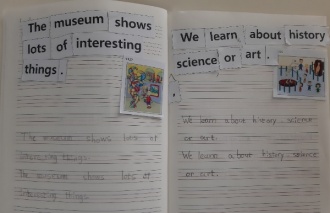 The museum shows
lots of interesting
things.
The museum shows lots of
interesting things.
The museum shows lots of
interesting things.
We learn about history
science or art.
,
We learn about history, science
or art.
We learn about history, science
or art.